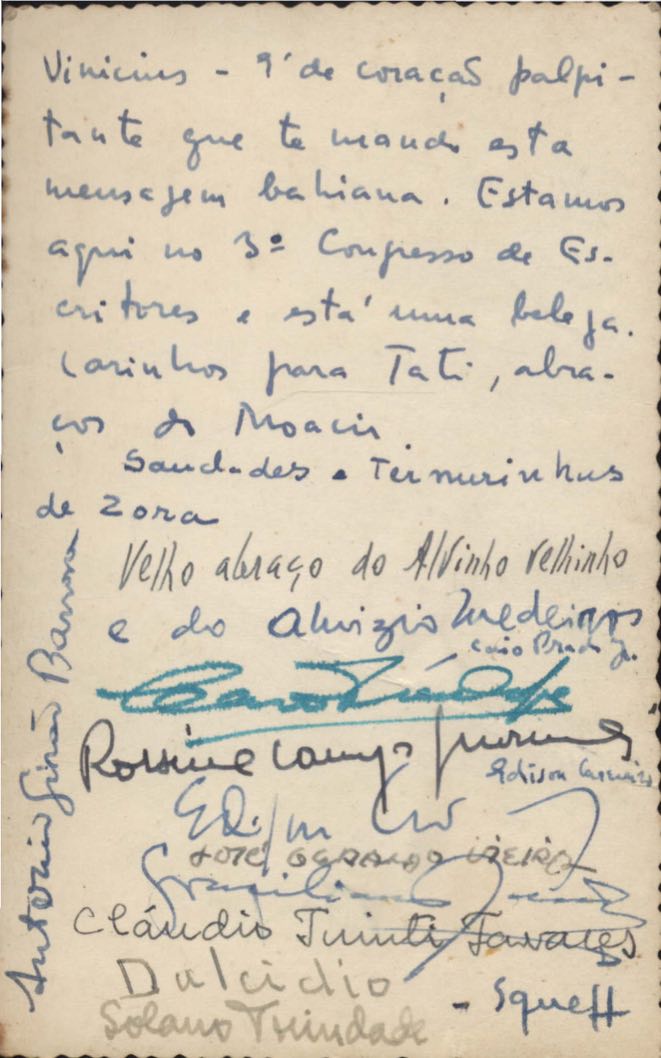 Vinicius – É de coração palpi-
tante que te mando esta
mensagem bahiana. Estamos
aqui no 3º Congresso de Es-
critores e está uma beleza.
Carinhos para Tati, abra-
ços do Moacir
Saudades e Ternurinhas
de Zora
Velho abraço do Alvinho velhinho
e do Aluizio Medeiros
Caio Prado Jr.
Rossine Camargo Guarnieri
Edison Carneiro
José Geraldo Vieira
Graciliano Ramos
Cláudio Tuiuti Tavares
Dalcidio
– Squeff
Solano Trindade
Antonio Girão Barroso